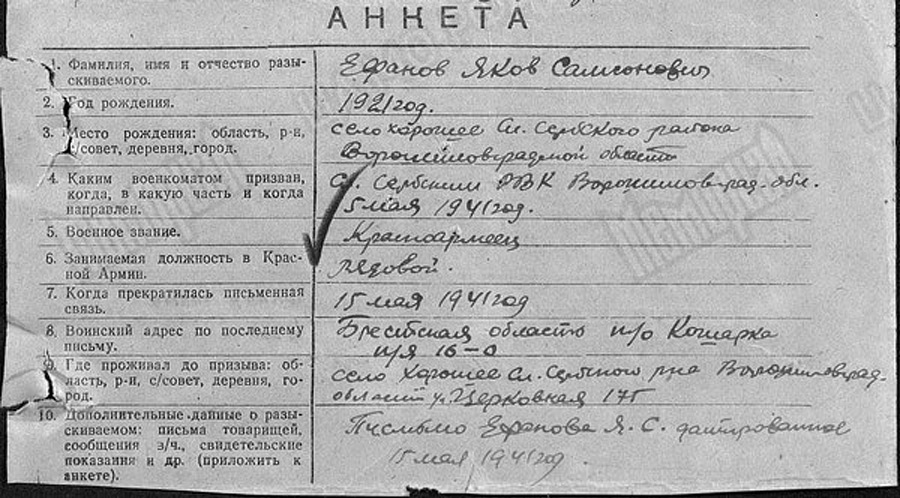 АНКЕТА
1. Фамилия, имя и отчество разы-
скиваемого.
Ефанов Яков Самсонович
2. Год рождения.
1921 год.
3. Место рождения: область, р-н,
с/совет, деревня, город.
село Хорошее Сл. Сербского района
Ворошиловградской области
4. Каким военкоматом призван,
когда, в какую часть и когда
направлен.
Сл. Сербским РВК Ворошиловград. обл.
5 мая 1941 год.
5. Военное звание.
Красноармеец
6. Занимаемая должность в Крас-
ной Армии.
Рядовой.
7. Когда прекратилась письменная
связь.
15 мая 1941 год
8. Воинский адрес по последнему
письму.
Брестская область п/о Кошарка
п/я 16-0
9. Где проживал до призыва: об-
ласть, р-н, с/совет, деревня, го-
род.
село Хорошее Сл. Сербского р-на Ворошиловград-
области ул Церковная 17Г
10. Дополнительные данные о разы-
скиваемом: письма товарищей,
сообщения з/ч., свидетельские
показания и др. (приложить к
анкете).
Письмо Ефанова Я. С. датированное
15 мая 1941 год.